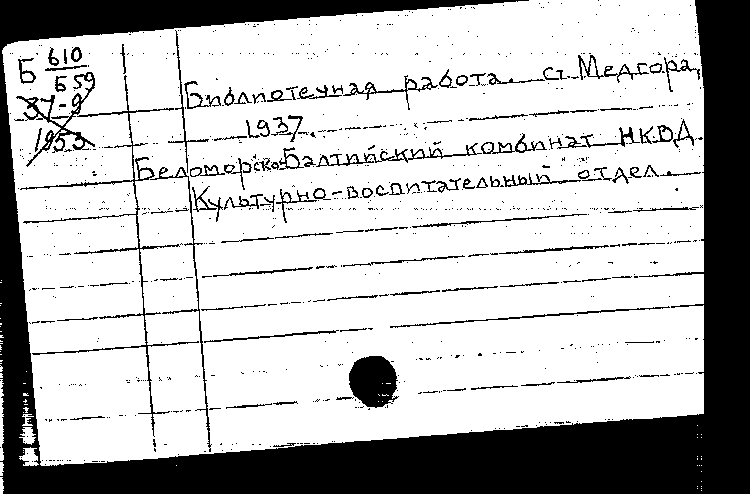 Б 610
Б 59
37-9
1953
Библиотечная работа. ст. Медгора,
1937.
Беломорско-Балтийский комбинат НКВД.
Культурно-воспитательный отдел.